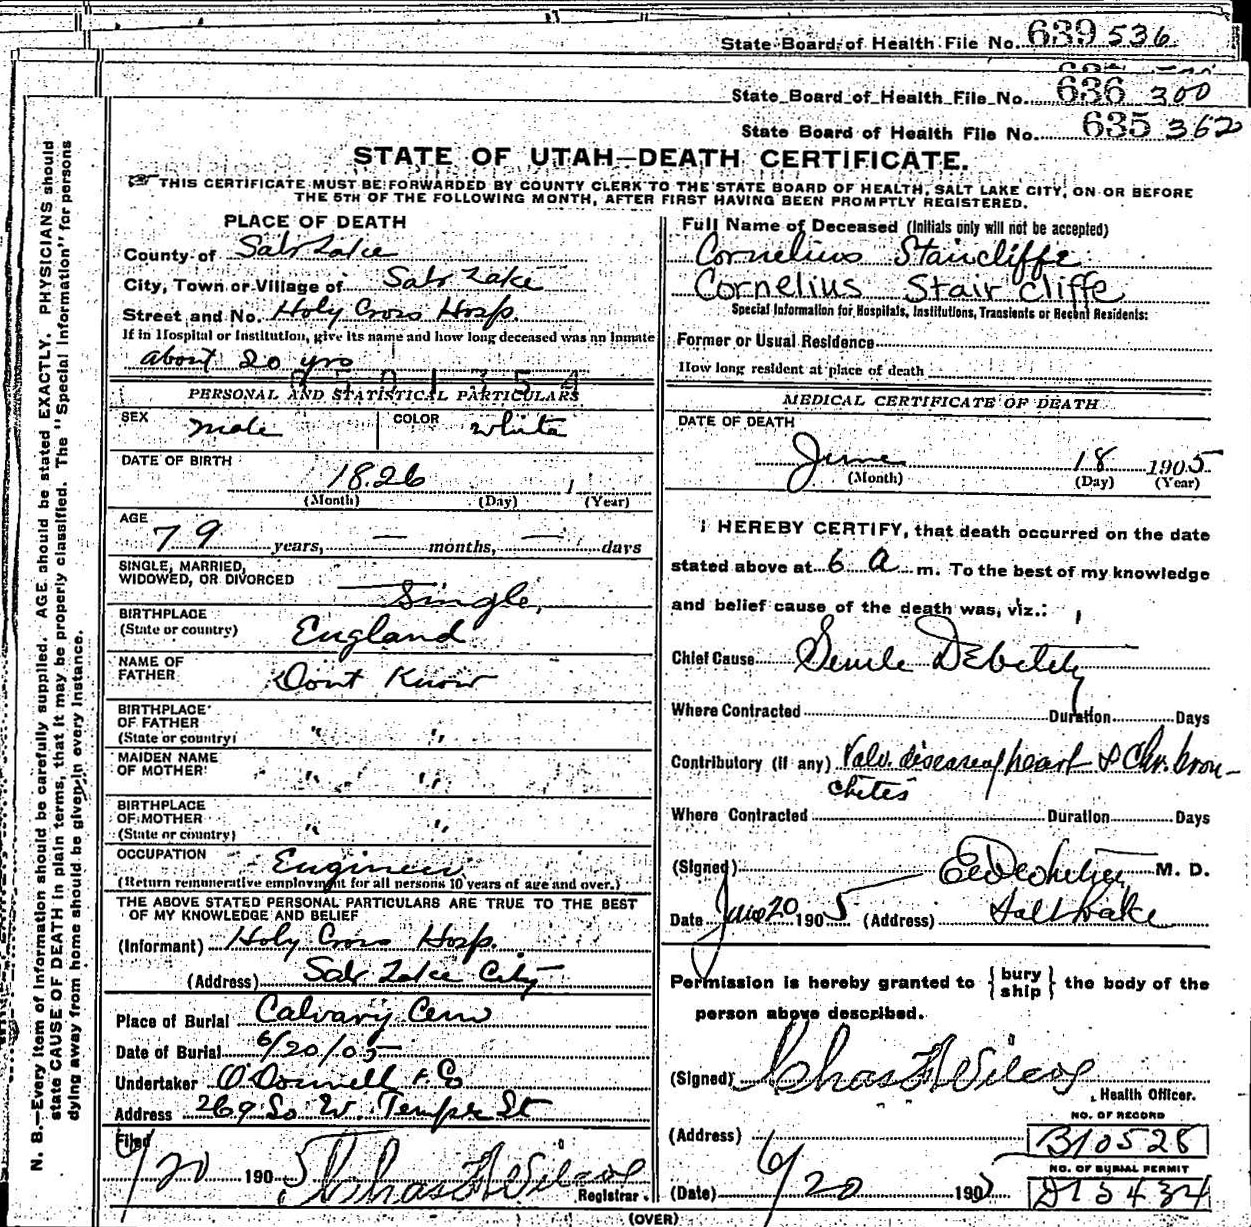 State Board of Health File No. 639 536
State Board of Health File No. 636 300
State Board of Health File No. 635 362
STATE OF UTAH—DEATH CERTIFICATE.
THIS CERTIFICATE MUST BE FORWARDED BY COUNTY CLERK TO THE STATE BOARD OF HEALTH, SALT LAKE CITY, ON OR BEFORE
THE 5TH OF THE FOLLOWING MONTH, AFTER FIRST HAVING BEEN PROMPTLY REGISTERED.
N. B.—Every item of information should be carefully supplied. AGE should be stated EXACTLY. PHYSICIANS should
state CAUSE OF DEATH in plain terms, that it may be properly classified. The "Special Information" for persons
dying away from home should be given in every instance.
PLACE OF DEATH
County of Salt Lake
City, Town or Village of Salt Lake
Street and No. Holy Cross Hosp.
If in Hospital or Institution, give its name and how long deceased was an inmate
about 20 yrs
PERSONAL AND STATISTICAL PARTICULARS
SEX male COLOR white
DATE OF BIRTH
1826
(Month) (Day) (Year)
AGE
79 years, — months, — days
SINGLE, MARRIED,
WIDOWED, OR DIVORCED Single
BIRTHPLACE
(State or country) England
NAME OF
FATHER Dont Know
BIRTHPLACE
OF FATHER
(State or country) " "
MAIDEN NAME
OF MOTHER " "
BIRTHPLACE
OF MOTHER
(State or country) " "
OCCUPATION Engineer
(Return remunerative employment for all persons 10 years of age and over.)
THE ABOVE STATED PERSONAL PARTICULARS ARE TRUE TO THE BEST
OF MY KNOWLEDGE AND BELIEF
(Informant) Holy Cross Hosp.
(Address) Salt Lake City
Place of Burial Calvary Cem
Date of Burial 6/20/05
Undertaker O'Donnell & Co
Address 269 So W. Temple St
Filed
6/20 1905 Chas F Wilcox
Registrar.
Full Name of Deceased (Initials only will not be accepted)
Cornelius Staircliffe
Cornelius Stair cliffe
Special Information for Hospitals, Institutions, Transients or Recent Residents:
Former or Usual Residence
How long resident at place of death
MEDICAL CERTIFICATE OF DEATH
DATE OF DEATH
June 18 1905
(Month) (Day) (Year)
I HEREBY CERTIFY, that death occurred on the date
stated above at 6 a m. To the best of my knowledge
and belief cause of the death was, viz.:
Chief Cause Senile Debility
Where Contracted Duration Days
Contributory (if any) Valv. disease of heart & Chr. bron-
chitis
Where Contracted Duration Days
(Signed) M. D.
Date June 20 1905 (Address) Salt Lake
Permission is hereby granted to {bury ship} the body of the
person above described.
(Signed) Chas F Wilcox
Health Officer.
NO. OF RECORD
(Address) B10528
NO. OF BURIAL PERMIT
(Date) 6/20 1905 D15434
(OVER)